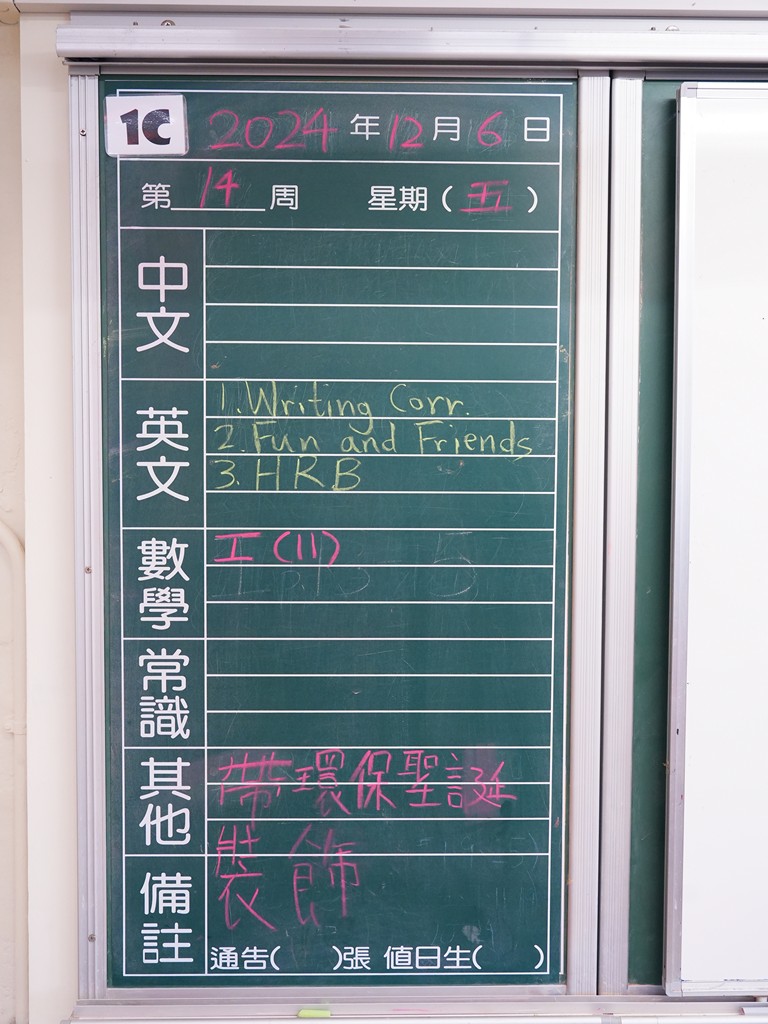 1C 2024年12月6日
第14周 星期(五)
中文
英文
1. Writing Corr.
2. Fun and Friends
3. HRB
數學
工(11)
常識
其他
帶環保聖誕
裝飾
備註
通告( )張 值日生( )